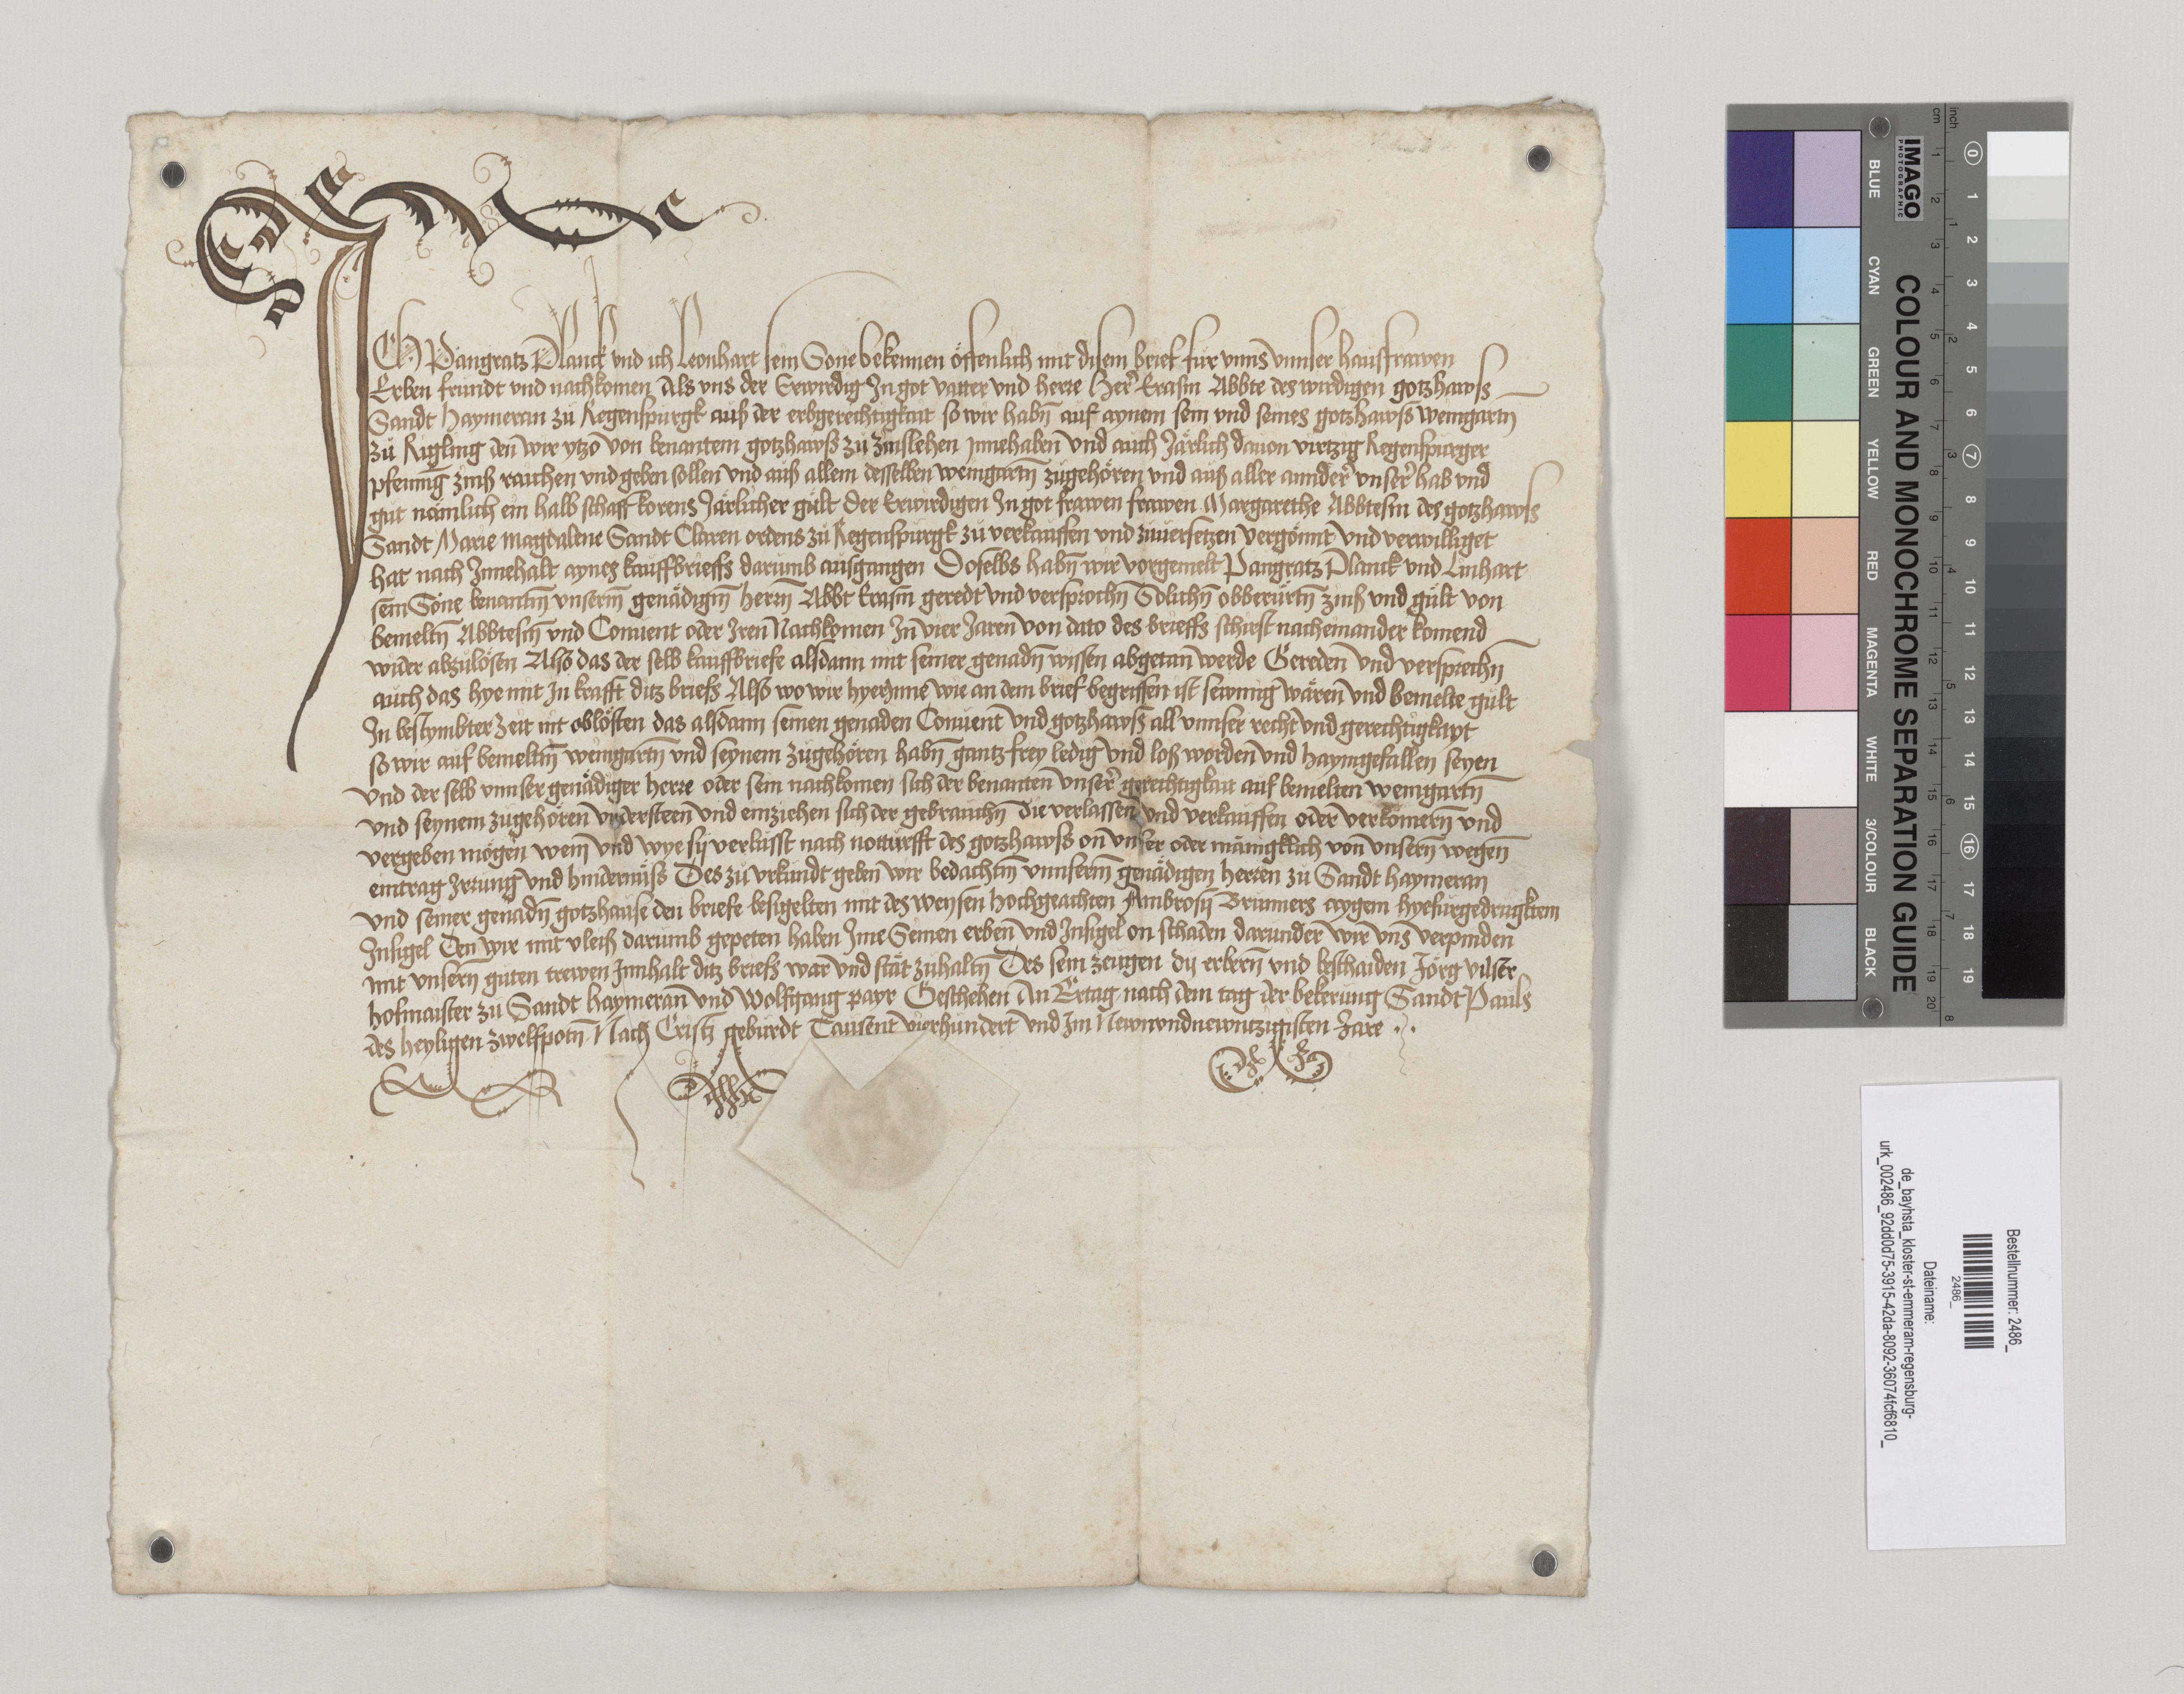 ICh Pangratz Planck vnd ich Leonhart sein Sone bekennen öffenlich mit disem brief für vnns vnnser hausfrawen
Erben frundt vnd nachkomen Als vns der Erwirdig In got vatter vnd herre Her Erasm Abbte des wirdigen gotzhawss
Sandt Haymeran zu Regenspurgk auß der erbgerechtigkait so wir habn̄ auf aynem sein vnd seines gotzhawss weingartn̄
zu kigling den wir ytzo von benantem gotzhawss zu zinslehen ynnehaben vnd auch Järlich dauon virtzig Regenspurger
pfennig zinß raichen vnd geben sollen vnd auß allem desselben weingartn̄ zugehören vnd auß aller annder vnser hab vnd
gut nämlich ein halb schaff korens Järlicher gült der Erwirdigen In got frawen frawen Margarethe Abbtesin des gotzhawss
Sandt Marie Magdalene Sandt Claren ordens zu Regenspurgk zu verkauffen vnd zuuersetzen vergönnt vnd verwilliget
hat nach Innehalt aynes kauffbrieffs darumb ausgangen Doselbs habn̄ wir vorgemelt Pangratz Planck vnd Linhart
sein Sone benantn̄ vnserm̄ genädign̄ herrn̄ Abbt Erasm̄ geredt vnd versprochn̄ Sölichn̄ obberürtn̄ zinß vnd gült von
bemeltn̄ Abbtesin̄ vnd Conuent oder Iren Nachkomen In vier Jaren von dato des brieffs schirst nacheinander komend
wider abzulösen Also das der selb kauffbriefe alsdann mit seiner genadn̄ wissen abgetan werde Gereden vnd versprechn̄
auch das hye mit In krafft ditz briefs Also wo wir hyerInne wie an dem brief begriffen ist sewmig wären vnd bemelte gült
In bestymbter zeit nit oblösten das alsdann seinen genaden Conuent vnd gotzhawss all vnnser recht vnd gerechtigkayt
so wir auf bemeltm̄ weingartn̄ vnd seynem zugehören habn̄ gantz frey ledig vnd loß worden vnd haymgefallen seyen
vnd der selb vnnser genädiger herre oder sein nachkomen sich der benanten vnser gerechtigkait auf bemelten weingartn̄
vnd seynem zugehören vndersteen vnd einziehen sich der gebrauchn̄ die verlassen vnd verkauffen oder verkomern̄ vnd
vergeben mögen wem vnd wye sy verlusst nach notturfft des gotzhawss on vnser oder mänigklich von vnsern̄ wegen̄
eintrag Irrung vnd hindernuss Des zu vrkundt geben wir bedachtm̄ vnnserm̄ genädigen herren zu Sandt Haymeran
vnd seiner genadn̄ gotzhause den briefe besigelten mit des weysen hochgeachten Ambrosy Brunners aygem hyefurgedrugktem
Insigel Den wir mit vleiß darumb gepeten haben Ime Seinen erben vnd Insigel on schaden darunder wir vns verpinden
mit vnsern̄ guten trewen Innhalt ditz briefs war vnd stät zuhaltn̄ Des sein zeugen dy erbern̄ vnd beschaiden Jörg vilser
hofmaister zu Sandt Haymeran̄ vnd Wolfgang payr Geschehen An Ertag nach dem tag der bekerung Sandt Pauls
des heyligen zwelfpotn̄ Nach Cristi geburdt Tausent vierhundert vnd Im Newnvndnewntzigisten Jare
IMAGO
PHOTOGRAPHIC
COLOUR AND MONOCHROME SEPARATION GUIDE
BLUE CYAN GREEN YELLOW RED MAGENTA WHITE 3/COLOUR BLACK
cm 1 2 3 4 5 6 7 8 9 10 11 12 13 14 15 16 17 18 19 20
inch 1 2 3 4 5 6 7 8
0 1 2 3 4 5 6 7 8 9 10 11 12 13 14 15 16 17 18 19
Bestellnummer: 2486_
2486_
Dateiname:
de_bayhsta_kloster-st-emmeram-regensburg-
urk_002486_92dd0d75-3915-42da-8092-36074fcf6810_